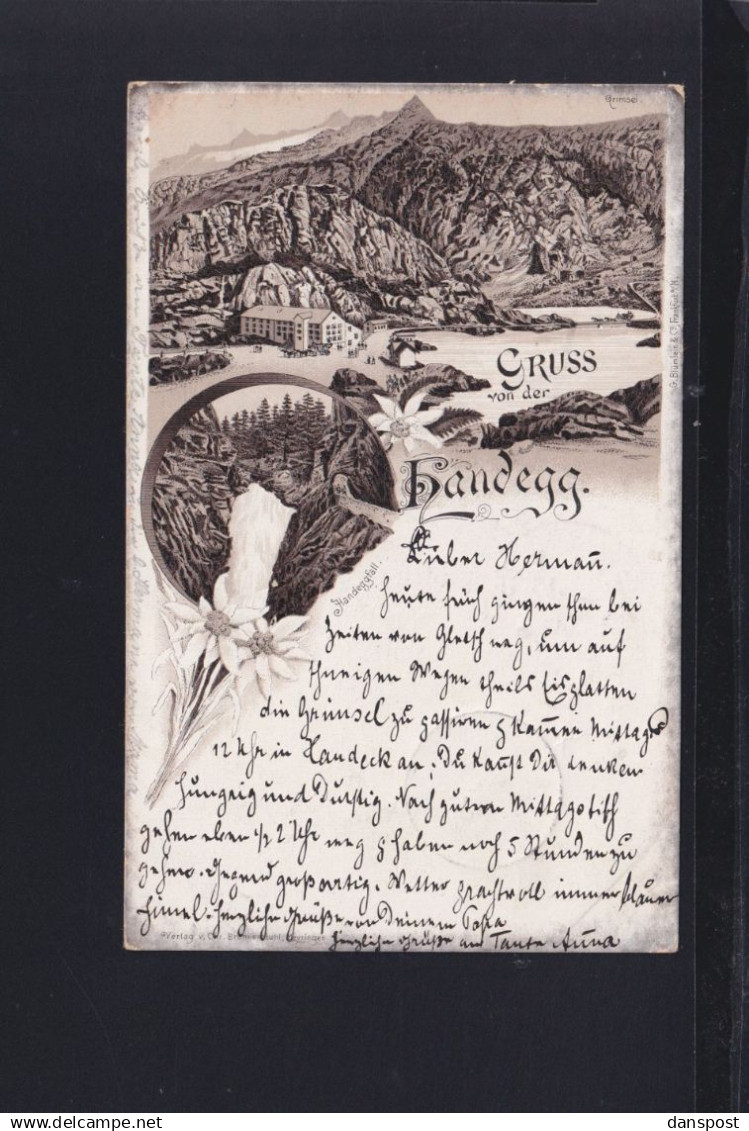 Grimsel.
GRUSS
von der
Handegg.
Handeggfall.
Lieber Hermañ.
Heute früh gingen schon bei
Zeiten von Gletsch weg, um auf
schneeigen Wegen theils Eisplatten
die Grimsel zu passiren & kamen Mittags
12 Uhr in Handeck an; Du kañst Dir denken
hungrig und Durstig. Nach gutem Mittagstisch
gehen eben ½ 2 Uhr weg & haben noch 5 Stunden zu
gehen. Gegend großartig. Wetter prachtvoll immer blauer
Himel. Herzliche Grüße von Deinem Papa
Herzliche Grüße an Tante Anna
Verlag v.
danspost